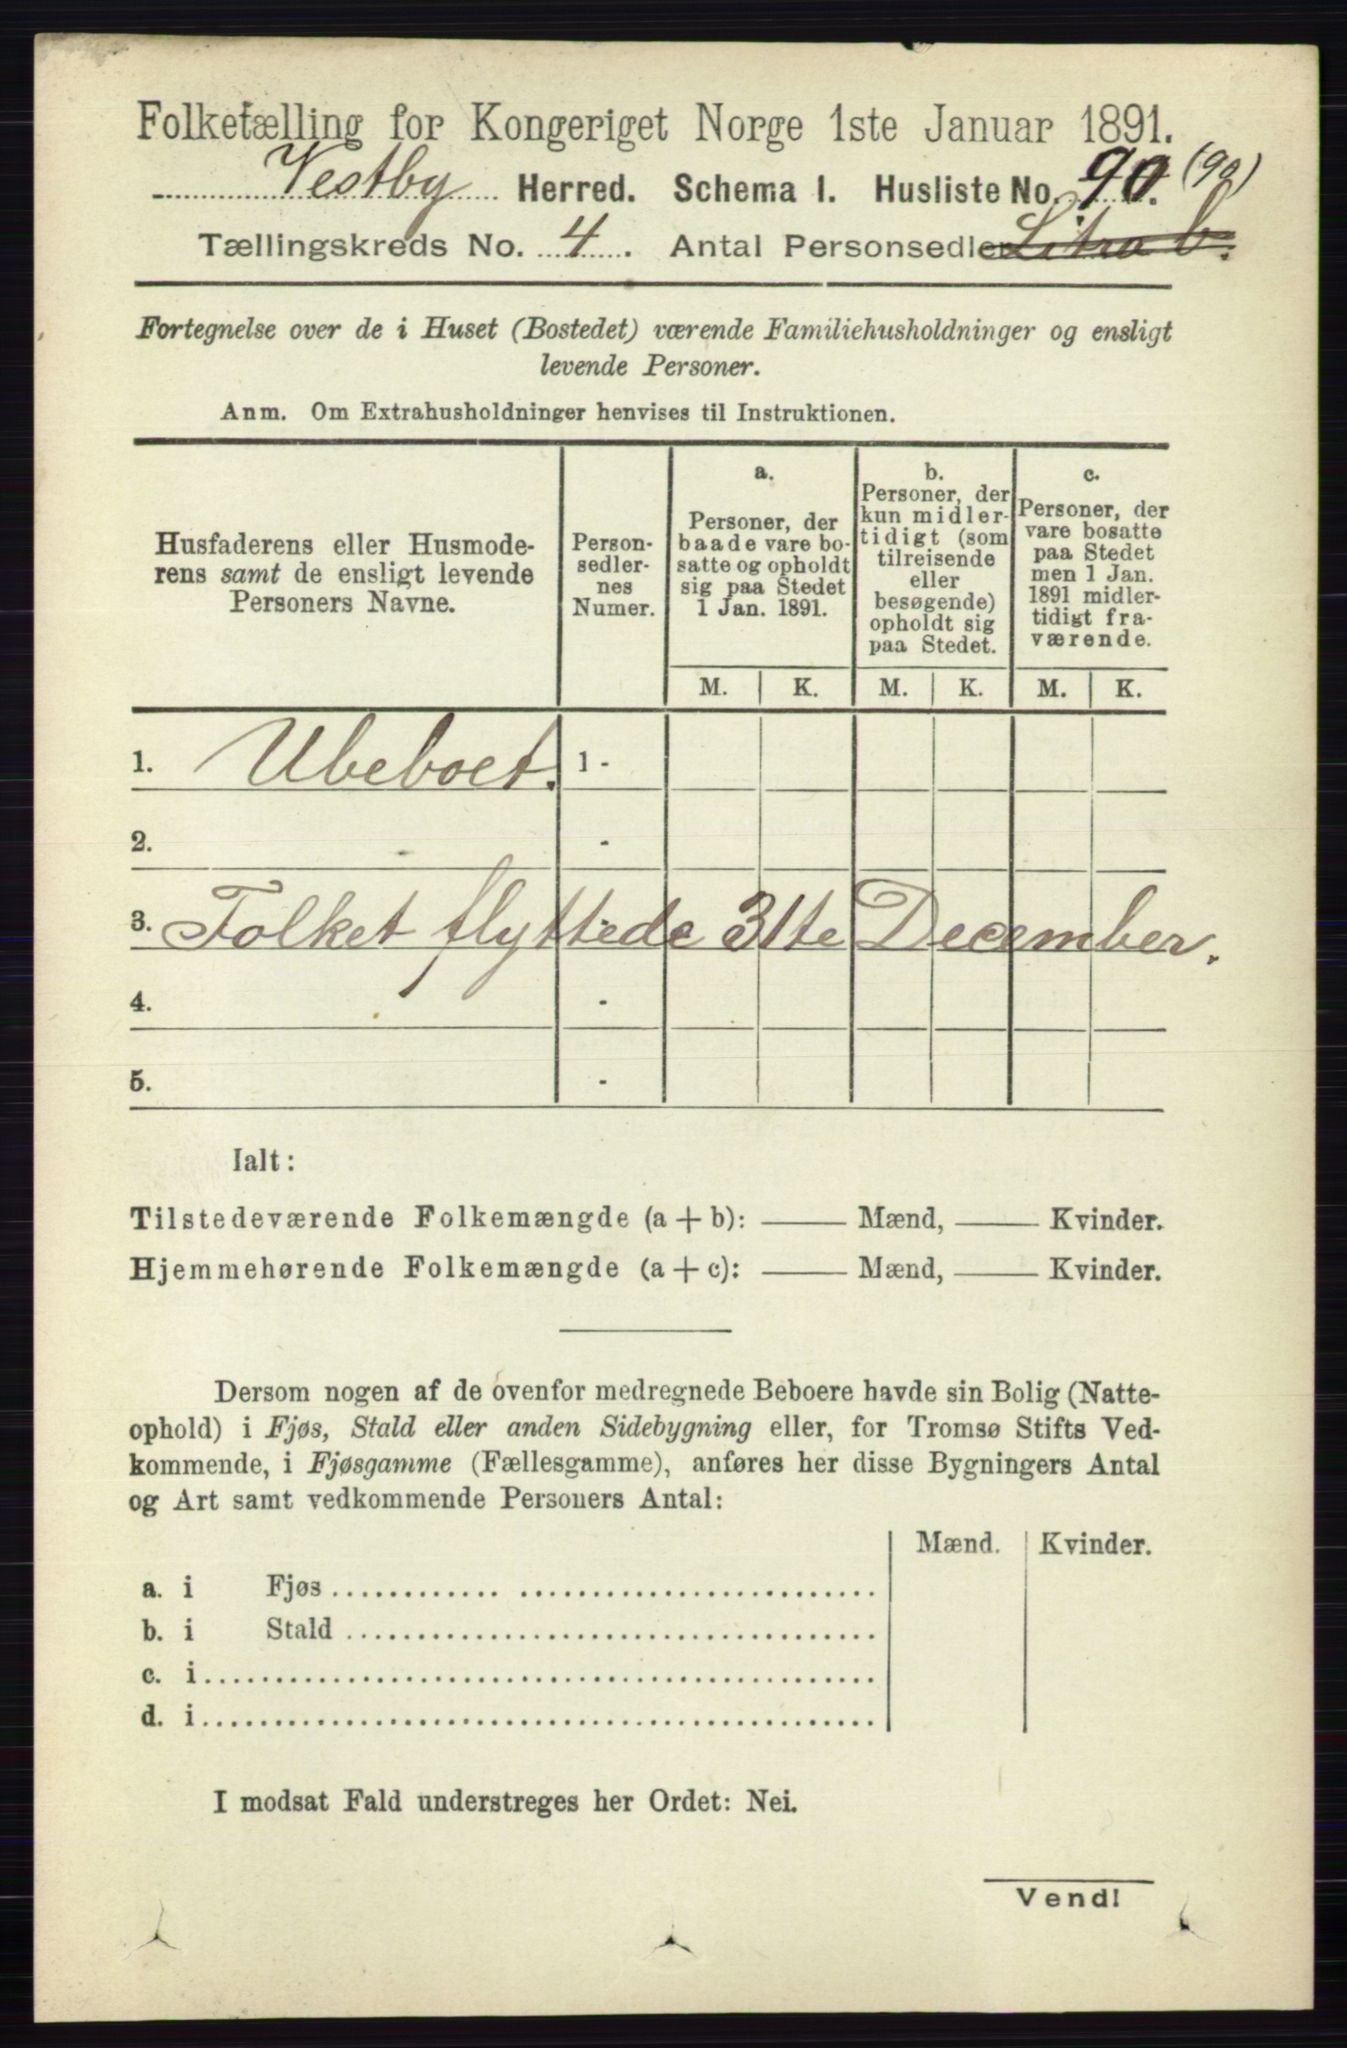 Folketælling for Kongeriget Norge 1ste Januar 1891.
Vestby Herred. Schema I. Husliste No. 90. (90)
Tællingskreds No. 4. Antal Personsedler Litra b.
Fortegnelse over de i Huset (Bostedet) værende Familiehusholdninger og ensligt
levende Personer.
Anm. Om Extrahusholdninger henvises til Instruktionen.
Husfaderens eller Husmode-
rens samt de ensligt levende
Personers Navne.
Person-
sedler-
nes
Numer.
a.
Personer, der
baade vare bo-
satte og opholdt
sig paa Stedet
1 Jan. 1891.
b.
Personer, der
kun midler-
tidigt (som
tilreisende
eller
besøgende)
opholdt sig
paa Stedet.
c.
Personer, der
vare bosatte
paa Stedet
men 1 Jan.
1891 midler-
tidigt fra-
værende.
M. K. M. K. M. K.
1. Ubeboet. 1 -
2. -
3. Folket flyttede 31te December.
4. -
5. -
Ialt:
Tilstedeværende Folkemængde (a + b): —— Mænd, —— Kvinder.
Hjemmehørende Folkemængde (a + c): —— Mænd, —— Kvinder.
Dersom nogen af de ovenfor medregnede Beboere havde sin Bolig (Natte-
ophold) i Fjøs, Stald eller anden Sidebygning eller, for Tromsø Stifts Ved-
kommende, i Fjøsgamme (Fællesgamme), anføres her disse Bygningers Antal
og Art samt vedkommende Personers Antal:
Mænd. Kvinder.
a. i Fjøs
b. i Stald
c. i
d. i
I modsat Fald understreges her Ordet: Nei.
Vend!